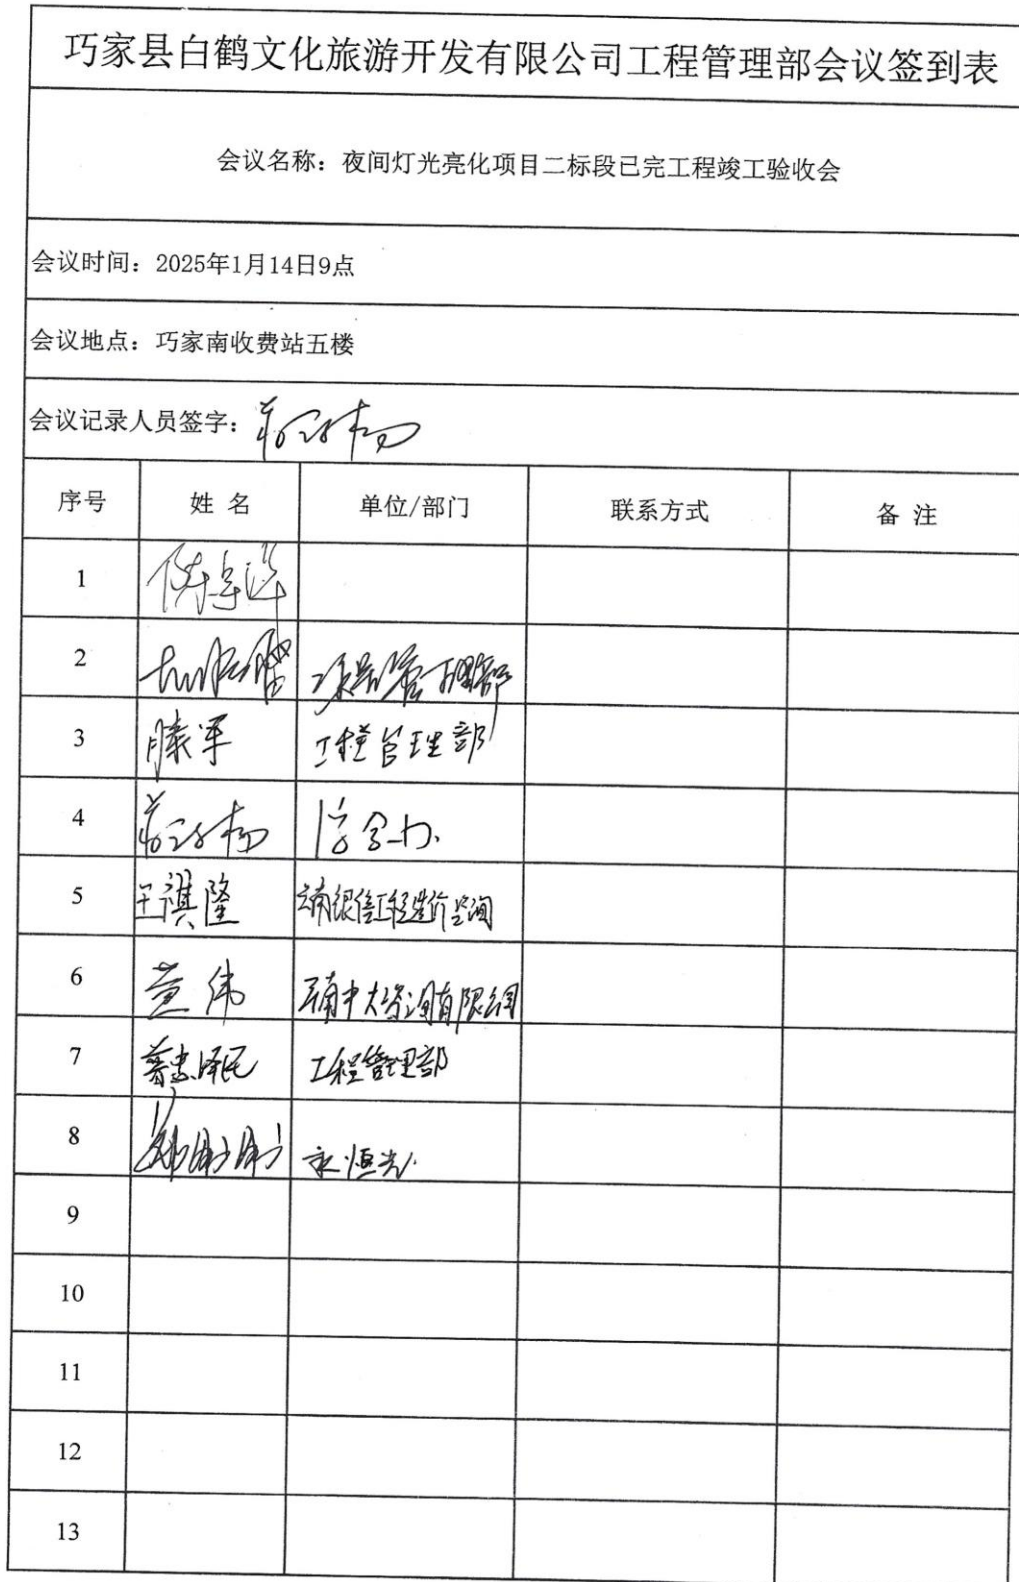 巧家县白鹤文化旅游开发有限公司工程管理部会议签到表
会议名称：夜间灯光亮化项目二标段已完工程竣工验收会
会议时间：2025年1月14日9点
会议地点：巧家南收费站五楼
会议记录人员签字：
序号 姓 名 单位/部门 联系方式 备 注
1
2
3 滕军 工程管理部
4 综合办
5 王祺隆 云南银信工程造价咨询
6 董伟
7 工程管理部
8 永恒光
9
10
11
12
13